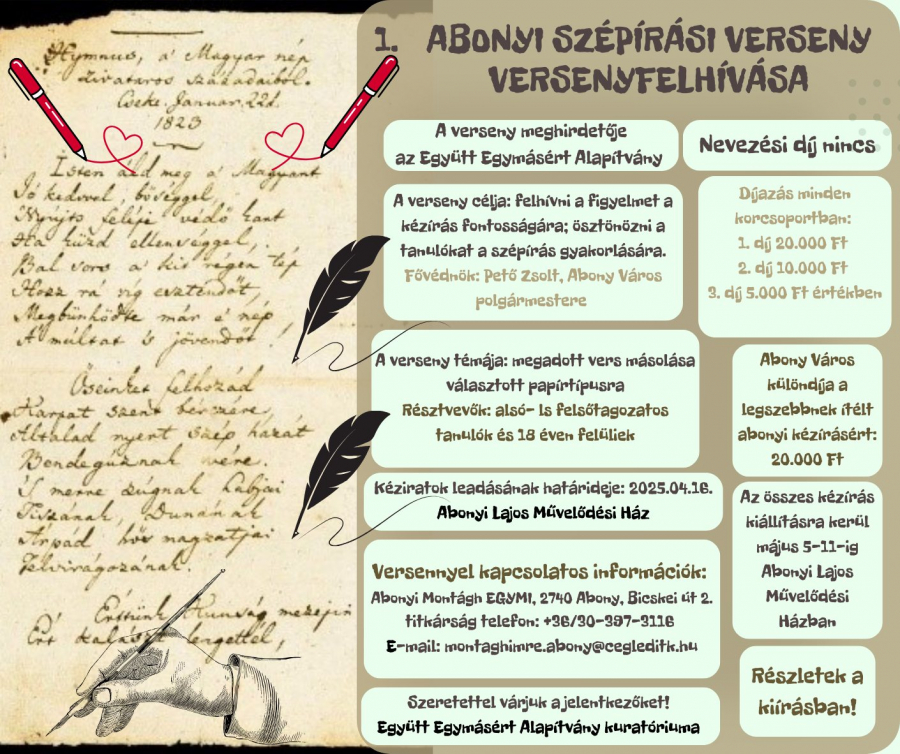 Hymnus, a' Magyar nép
zivataros századaiból.
Cseke. Januar. 22d.
1823
Isten áld meg a' Magyart
Jó kedvvel, bőséggel,
Nyújts feléje védő kart
Ha küzd ellenséggel,
Bal sors a' kit régen tép
Hozz rá víg esztendőt,
Megbünhödte már e' nép
A' multat 's jövendőt!
Őseinket felhozád
Kárpát szent bérczére,
Általad nyert szép hazát
Bendegúznak vére.
'S merre zúgnak habjai
Tiszának, Dunának
Árpád hős magzatjai
Felvirágozának.
Értünk Kunság mezején
Ért kalászt lengettél,
1. ABONYI SZÉPÍRÁSI VERSENY
VERSENYFELHÍVÁSA
A verseny meghirdetője
az Együtt Egymásért Alapítvány
Nevezési díj nincs
A verseny célja: felhívni a figyelmet a
kézírás fontosságára; ösztönözni a
tanulókat a szépírás gyakorlására.
Fővédnök: Pető Zsolt, Abony Város
polgármestere
Díjazás minden
korcsoportban:
1. díj 20.000 Ft
2. díj 10.000 Ft
3. díj 5.000 Ft értékben
A verseny témája: megadott vers másolása
választott papírtípusra
Résztvevők: alsó- ls felsőtagozatos
tanulók és 18 éven felüliek
Abony Város
különdíja a
legszebbnek ítélt
abonyi kézírásért:
20.000 Ft
Kéziratok leadásának határideje: 2025.04.16.
Abonyi Lajos Művelődési Ház
Az összes kézírás
kiállításra kerül
május 5-11-ig
Abonyi Lajos
Művelődési
Házban
Versennyel kapcsolatos információk:
Abonyi Montágh EGYMI, 2740 Abony, Bicskei út 2.
titkárság telefon: +36/30-397-3116
E-mail: montaghimre.abony@cegleditk.hu
Részletek a
kiírásban!
Szeretettel várjuk a jelentkezőket!
Együtt Egymásért Alapítvány kuratóriuma